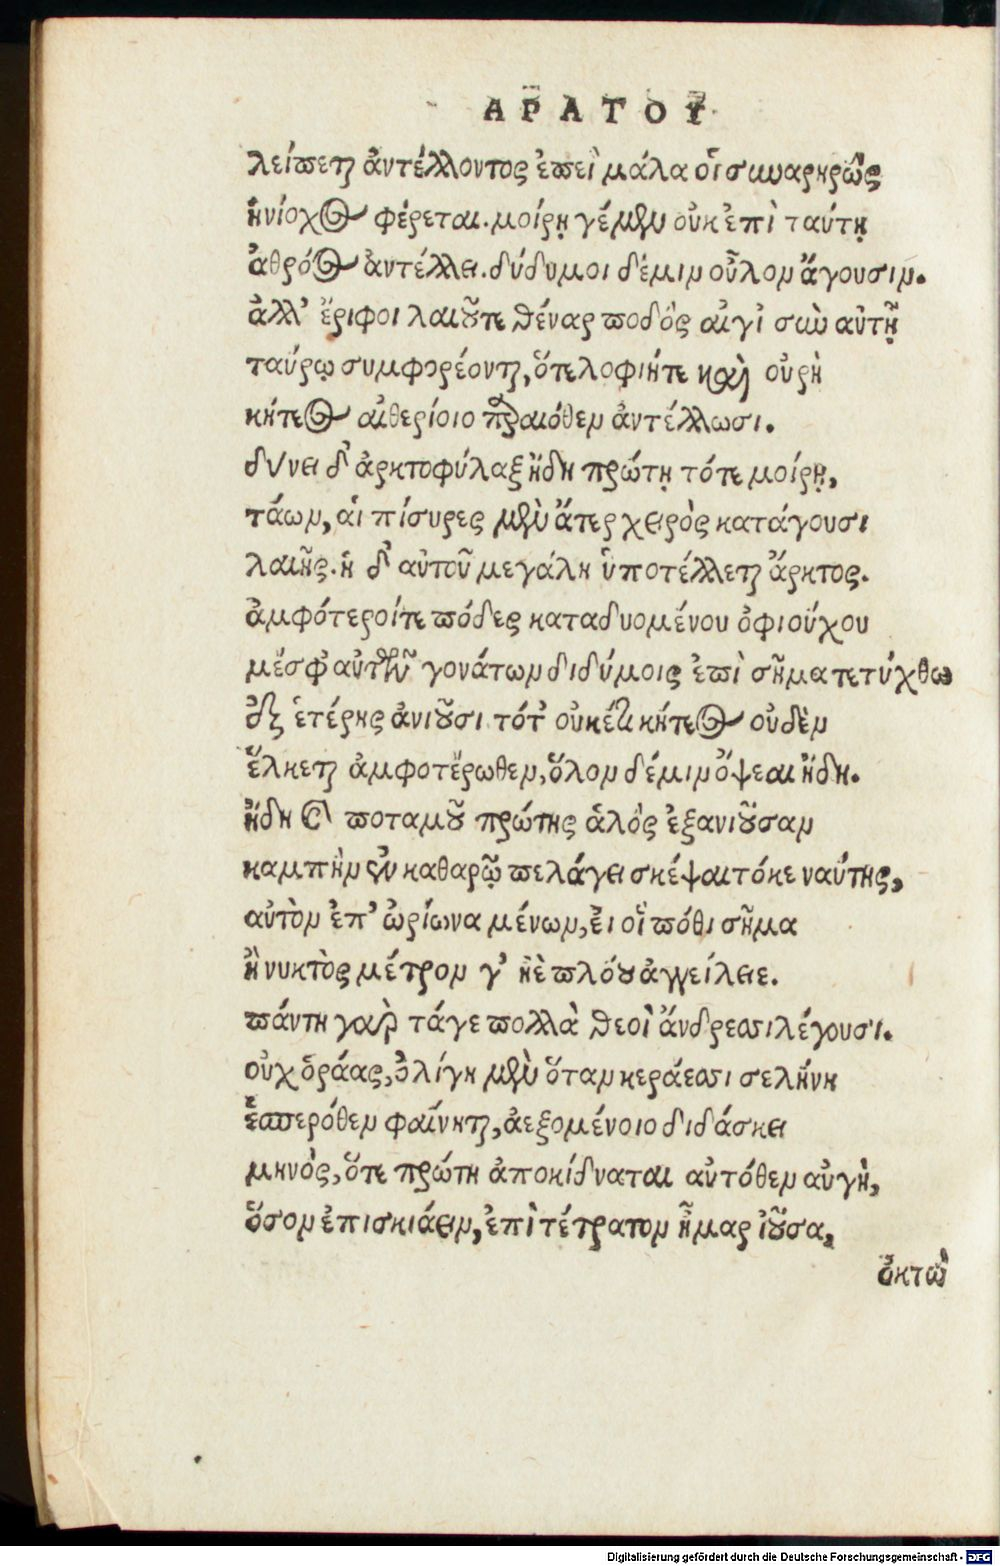 ΑΡΑΤΟΥ
λείπεται ἀντέλλοντος ἐπεὶ μάλα οἱ συναρηρὼς
ἡνίοχος φέρεται. μοίρῃ γέ μὲν οὐκ ἐπὶ ταύτῃ
ἀθρόος ἀντέλλει. δίδυμοι δέ μιν οὖλον ἄγουσιν.
ἀλλ' ἔριφοι λαιοῦ τε θέναρ ποδὸς αἰγὶ σὺν αὐτῇ
ταύρῳ συμφορέονται, ὅτε λοφιή τε καὶ οὐρὴ
κήτεος αἰθερίοιο περαιόθεν ἀντέλλωσι.
δύνει δ' ἀρκτοφύλαξ ἤδη πρώτῃ τότε μοίρῃ,
τάων, αἱ πίσυρες μὲν ἄτερ χειρὸς κατάγουσι
λαιῆς. ἡ δ' αὐτοῦ μεγάλη ὑποτέλλεται ἄρκτος.
ἀμφότεροί τε πόδες καταδυομένου ὀφιούχου
μέσφ' αὐτῶν γονάτων διδύμοις ἐπὶ σῆμα τετύχθω
ἐξ ἑτέρης ἀνιοῦσι. τότ' οὐκέτι κήτεος οὐδὲν
ἕλκεται ἀμφοτέρωθεν, ὅλον δέ μιν ὄψεαι ἤδη.
ἤδη καὶ ποταμοῦ πρώτης ἁλὸς ἐξανιοῦσαν
καμπὴν ἐν καθαρῷ πελάγει σκέψαιτό κε ναύτης,
αὐτὸν ἐπ' ὠρίωνα μένων, εἴ οἵ πόθι σῆμα
ἢ νυκτὸς μέτρον γ' ἠὲ πλόου ἀγγείλειε.
πάντη γὰρ τάγε πολλὰ θεοὶ ἄνδρεσσι λέγουσι.
οὐχ ὁράας, ὀλίγη μὲν ὅταν κεράεσσι σελήνη
ἑσπερόθεν φαίνηται, ἀεξομένοιο διδάσκει
μηνὸς, ὅτε πρώτη ἀποκίδναται αὐτόθεν αὐγὴ,
ὅσον ἐπισκιάειν, ἐπὶ τέτρατον ἦμαρ ἰοῦσα,
ὀκτὼ
Digitalisierung gefördert durch die Deutsche Forschungsgemeinschaft - DFG